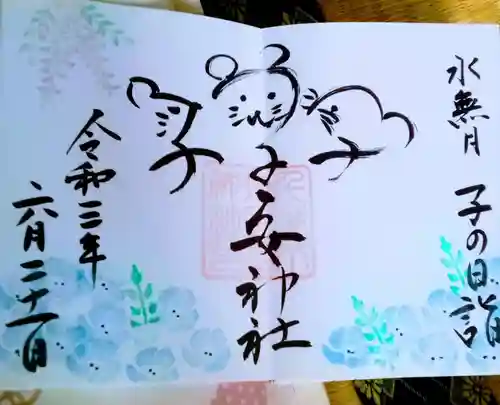 水無月
子の日詣
子
子
子
子安神社
令和三年
六月二十一日